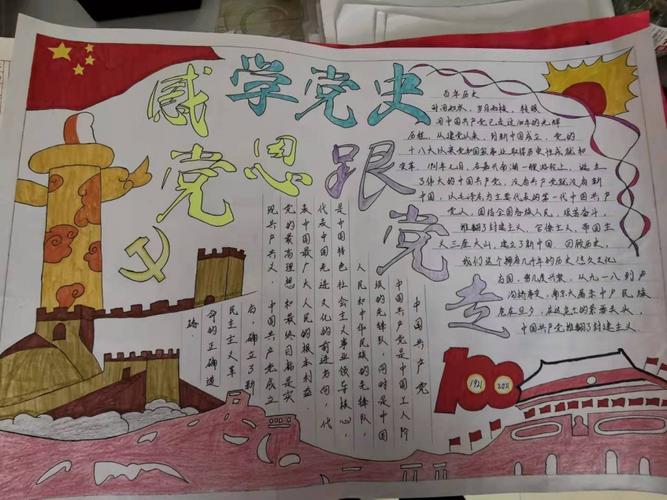 学党史
感党恩跟党走
百年历史
时间如水，岁月如梭，转眼
间中国共产党已走过100年的光辉
历程，从建党以来，到新中国成立，党的
十八大以来党和国家事业取得历史性成就和
变革，1921年七月，在嘉兴南湖一艘游船上，诞生
了伟大的中国共产党，没有共产党就没有新
中国，以毛泽东为主要代表的第一代中国共产
党人，团结全国各族人民，艰苦奋斗，
推翻了封建主义、官僚主义、帝国主
义三座大山，建立了新中国，回顾历史，
我们这个拥有几千年的历史悠久文化
古国，曾几度兴衰，从九一八到卢
沟桥事变，南京大屠杀中民族
危在旦夕，在这危亡的紧要关头，
中国共产党推翻了封建主义
中国共产党
中国共产党是中国工人阶
级的先锋队，同时是中国
人民和中华民族的先锋队，
是中国特色社会主义事业领导核心，
代表中国先进文化的前进方向，代
表中国最广大人民的根本利益，
党的最高理想和最终目标是实
现共产主义，中国共产党成立
后，确立了新
民主主义革
命的正确道
路.
1921
2021